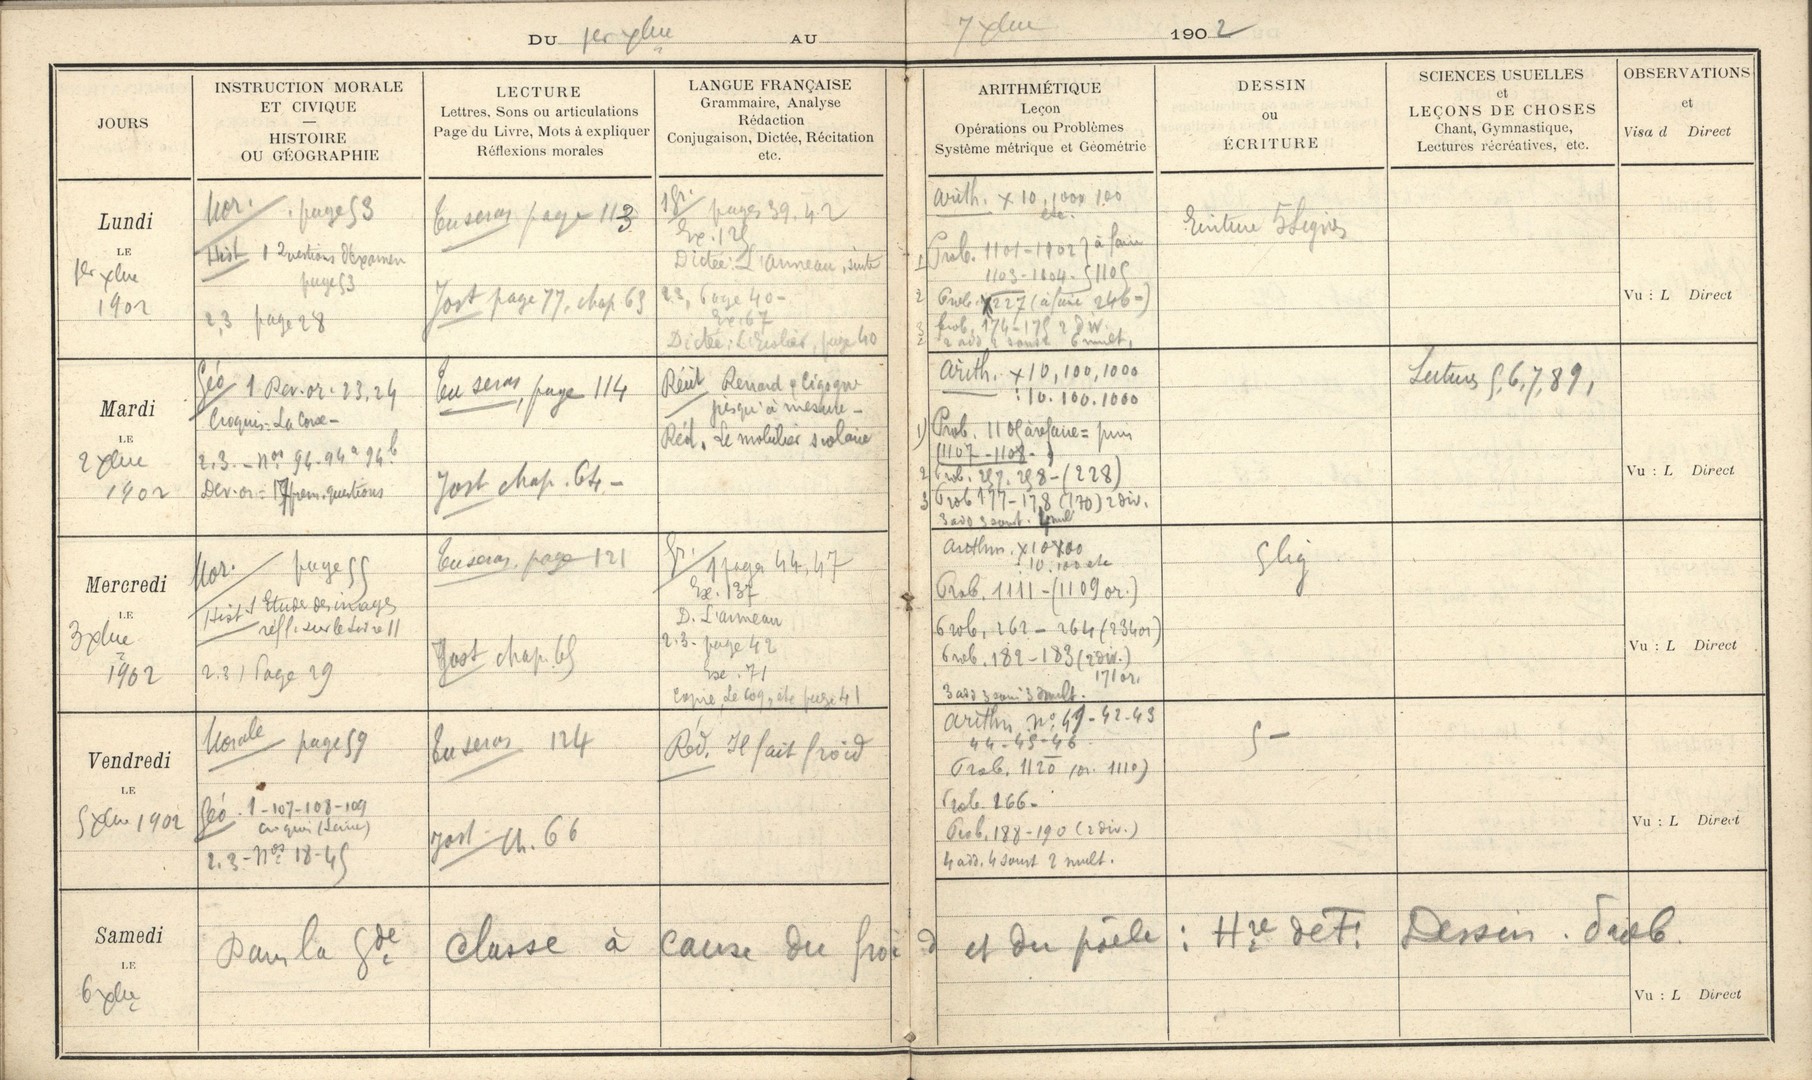 DU 1er xbre AU 7 xbre 1902
JOURS
INSTRUCTION MORALE
ET CIVIQUE
—
HISTOIRE
OU GÉOGRAPHIE
LECTURE
Lettres, Sons ou articulations
Page du Livre, Mots à expliquer
Réflexions morales
LANGUE FRANÇAISE
Grammaire, Analyse
Rédaction
Conjugaison, Dictée, Récitation
etc.
ARITHMÉTIQUE
Leçon
Opérations ou Problèmes
Système métrique et Géométrie
DESSIN
ou
ÉCRITURE
SCIENCES USUELLES
et
LEÇONS DE CHOSES
Chant, Gymnastique,
Lectures récréatives, etc.
OBSERVATIONS
et
Visa d Direct
Lundi
LE
1er xbre
1902
Mor. page 53
Hist 1 Questions d'Examen
page 53
2,3 page 28
Tu seras page 113
Jost page 77, chap 63
1 Gr. pages 39. 42
Ex. 125
Dictée: L'anneau, suite
2.3, Page 40-
Ex. 67
Dictée: L'Ecolier, page 40
Arith. x 10, 100 x 100
etc.
1 Prob. 1101-1102 à faire
1103-1104- 5 1105
2 Prob. 227 (à faire 246-)
3 Prob. 174-175 2 div.
2 add 2 soust 6 mult,
Ecriture 5 lignes
Vu : L Direct
Mardi
LE
2 xbre
1902
Géo 1 Dev. or. 23, 24
Croquis: La Corse-
2.3.-Nos 94-94a 94b
Dev. or = 17 prem. questions
Tu seras, page 114
Jost chap. 64.-
Récit Renard & Cigogne
jusqu'à mesure-
Réd. Le mobilier scolaire
Arith. x 10, 100, 1000
: 10. 100. 1000
1) Prob. 1105 à refaire = puis
(1107-1108-)
2 Prob. 257. 258-(228)
3 Prob 177-178 (170) 2 div.
3 add 3 soust. 4 mul
Lectures 5, 6, 7, 8 9,
Vu : L Direct
Mercredi
LE
3 xbre
1902
Mor. page 55
Hist 1 Etude des images
réfl. sur le livre 11
2.3 / Page 29
Tu seras, page 121
Jost chap. 65
Gr. 1 pages 44, 47
Ex. 137
D. L'anneau
2.3- page 42
Ex. 71
Copie, Le Coq, etc page 41
Arithm. x 10 x 100
: 10. 100 etc
Prob. 1111-(1109 or.)
Prob. 262-264 (234 or)
Prob. 182-183 (2 div.)
171 or.
3 add 3 sous 3 mult.
5 lig
Vu : L Direct
Vendredi
LE
5 xbre 1902
Morale page 59
Géo. 1-107-108-109
croquis (Seine)
2.3-Nos 18-45
Tu seras 124
Jost ch. 66
Réd. Il fait froid
Arithm no 41-42-43
44-45-46
Prob. 1120 (or. 1110)
Prob. 266-
Prob. 188-190 (2 div.)
4 add. 4 soust 2 mult.
5-
Vu : L Direct
Samedi
LE
6 xbre
Dans la Gde classe à cause du froid et du poêle : Hre de F. Dessin.
Vu : L Direct